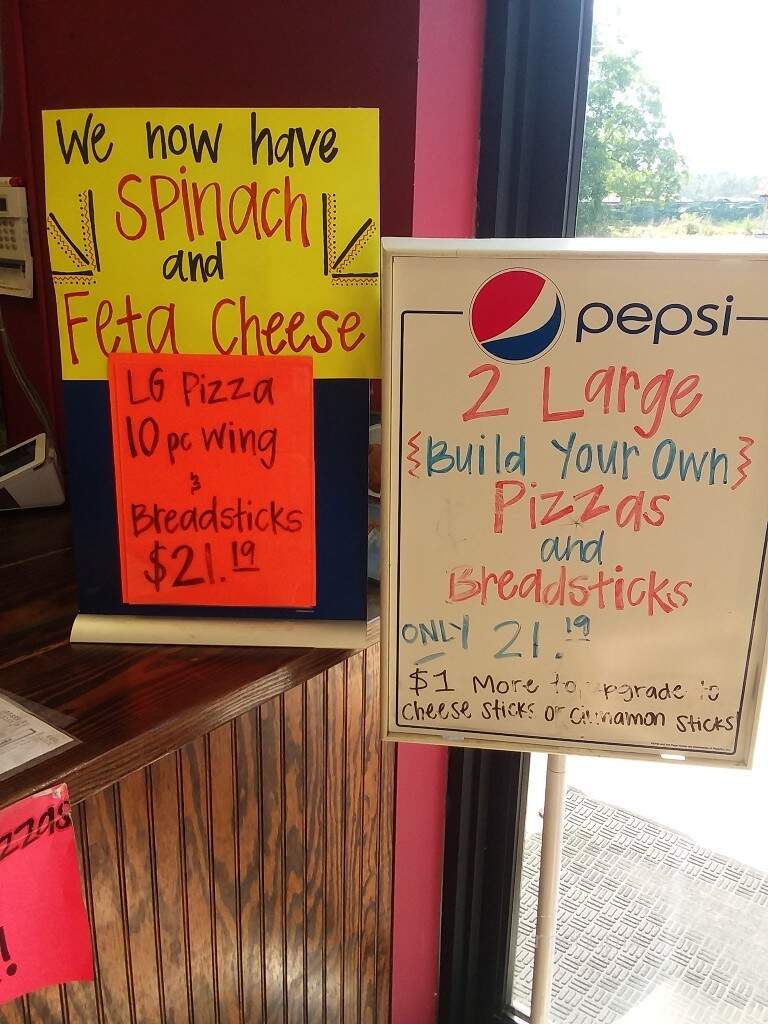 We now have
Spinach
and
Feta Cheese
LG Pizza
10 pc wing
&
Breadsticks
$21.19
pepsi
2 Large
{Build Your Own}
Pizzas
and
Breadsticks
ONLY 21.19
$1 More to upgrade to
cheese sticks or cinnamon sticks
zzas
!